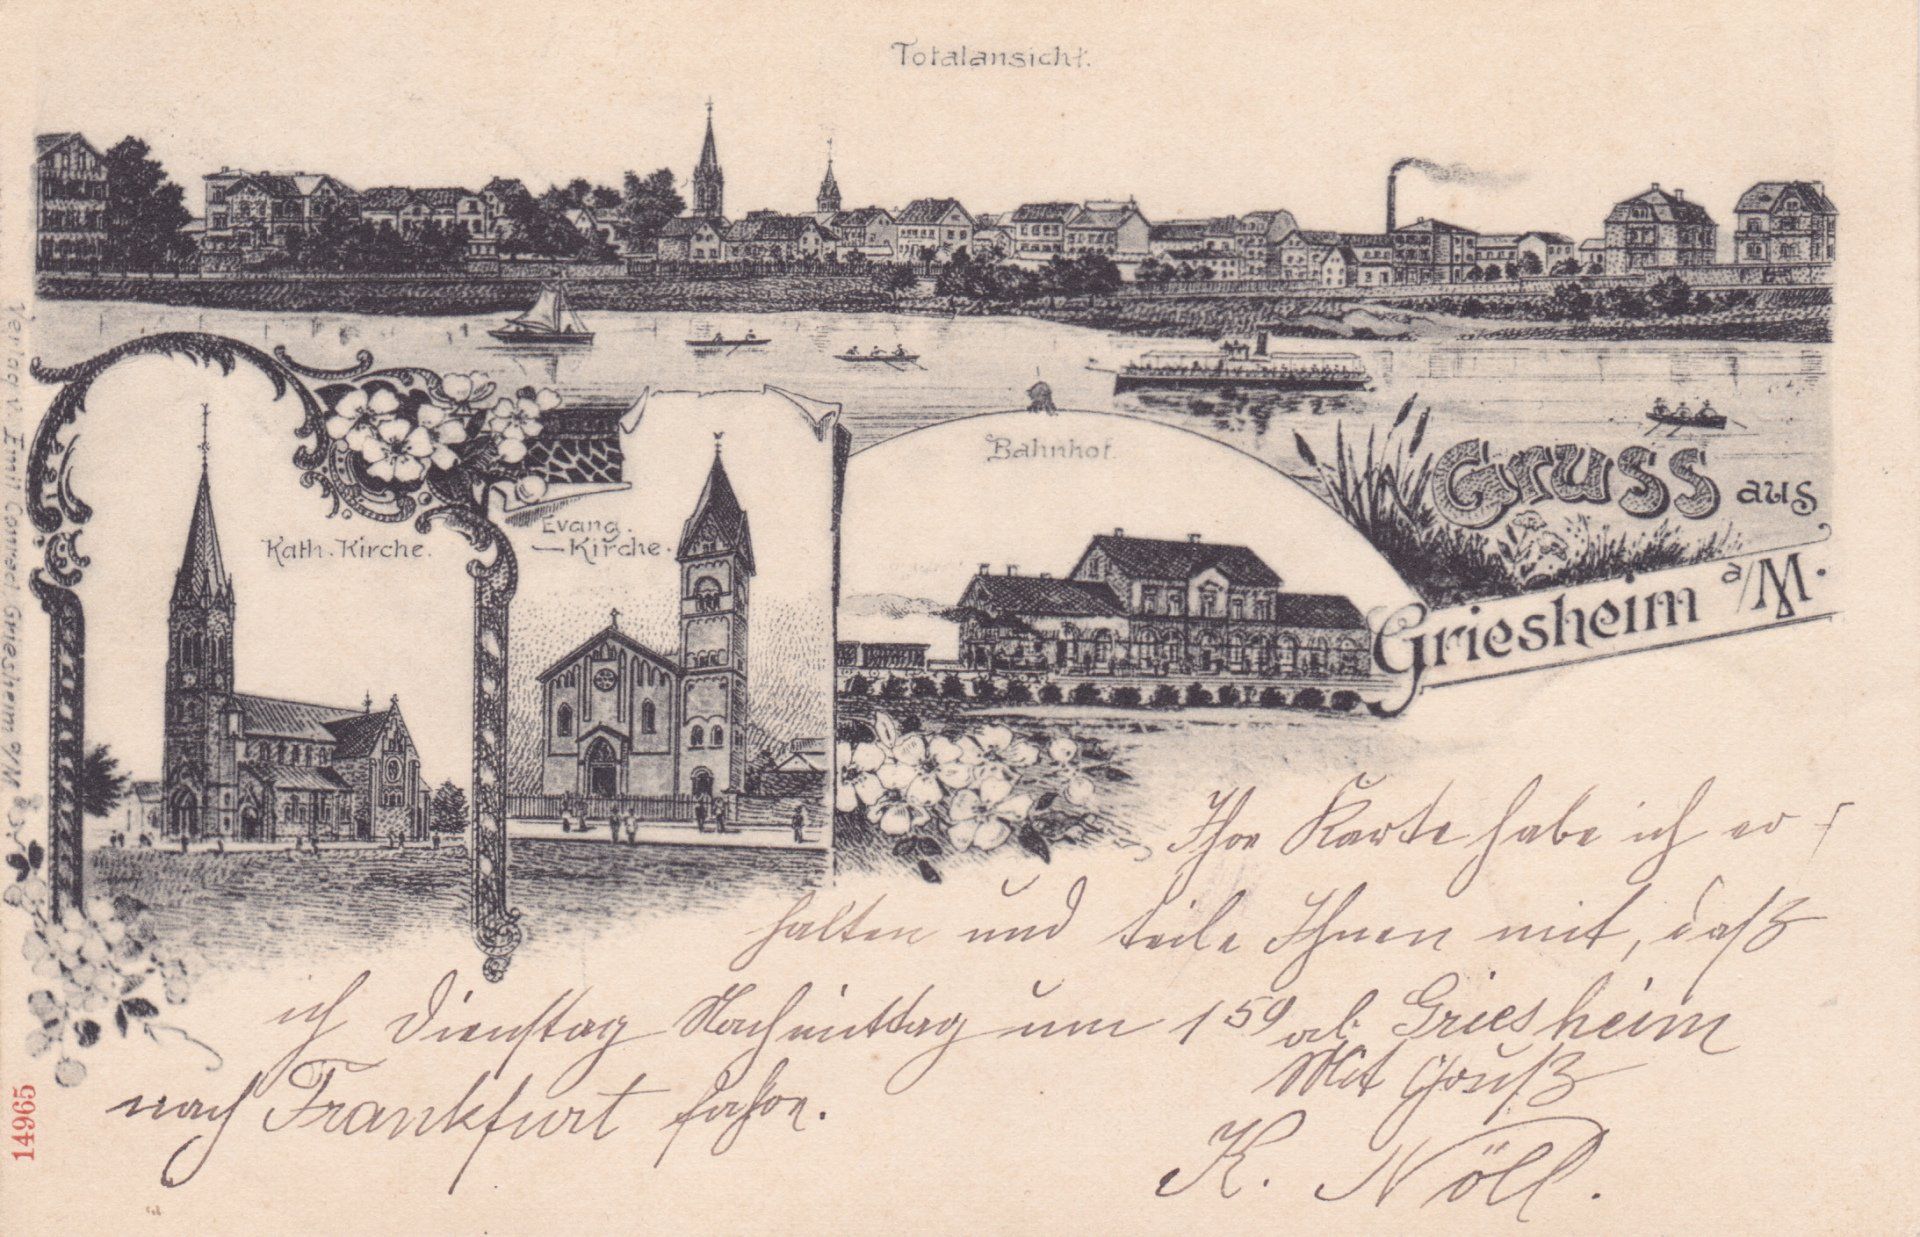 Totalansicht.
Kath. Kirche.
Evang.
Kirche.
Bahnhof.
Gruss aus
Griesheim a/M.
Verlag v. Emil Conrad, Griesheim a/M
14965
Ihre Karte habe ich er-
halten und teile Ihnen mit, daß
ich Dienstag Nachmittag um 1 59 ab Griesheim
nach Frankfurt fahre.
Mit Gruß
K. Nöll.